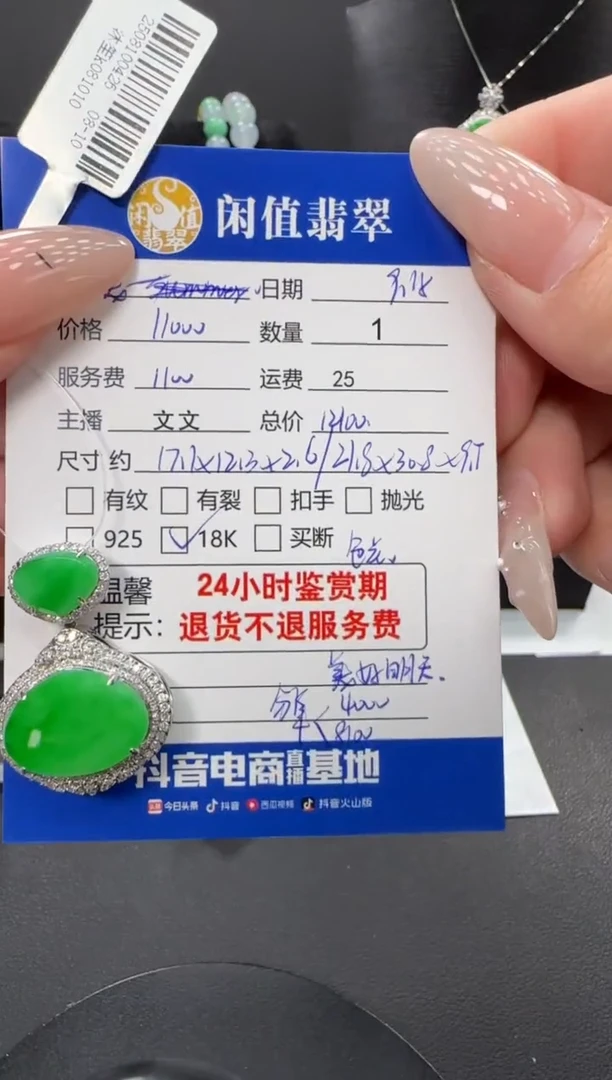 2508100426
K081010 08-10
闲值翡翠
闲值翡翠
日期
价格 11000 数量 1
服务费 1100 运费 25
主播 文文 总价 12100
尺寸 约 17.1x12.3x2.6/21.8x30.8x9.1
有纹 有裂 扣手 抛光
925 18K 买断
温馨 24小时鉴赏期
提示: 退货不退服务费
美好明天.
4000
8100
抖音电商直播基地
头条 今日头条 抖音 西瓜视频 抖音火山版